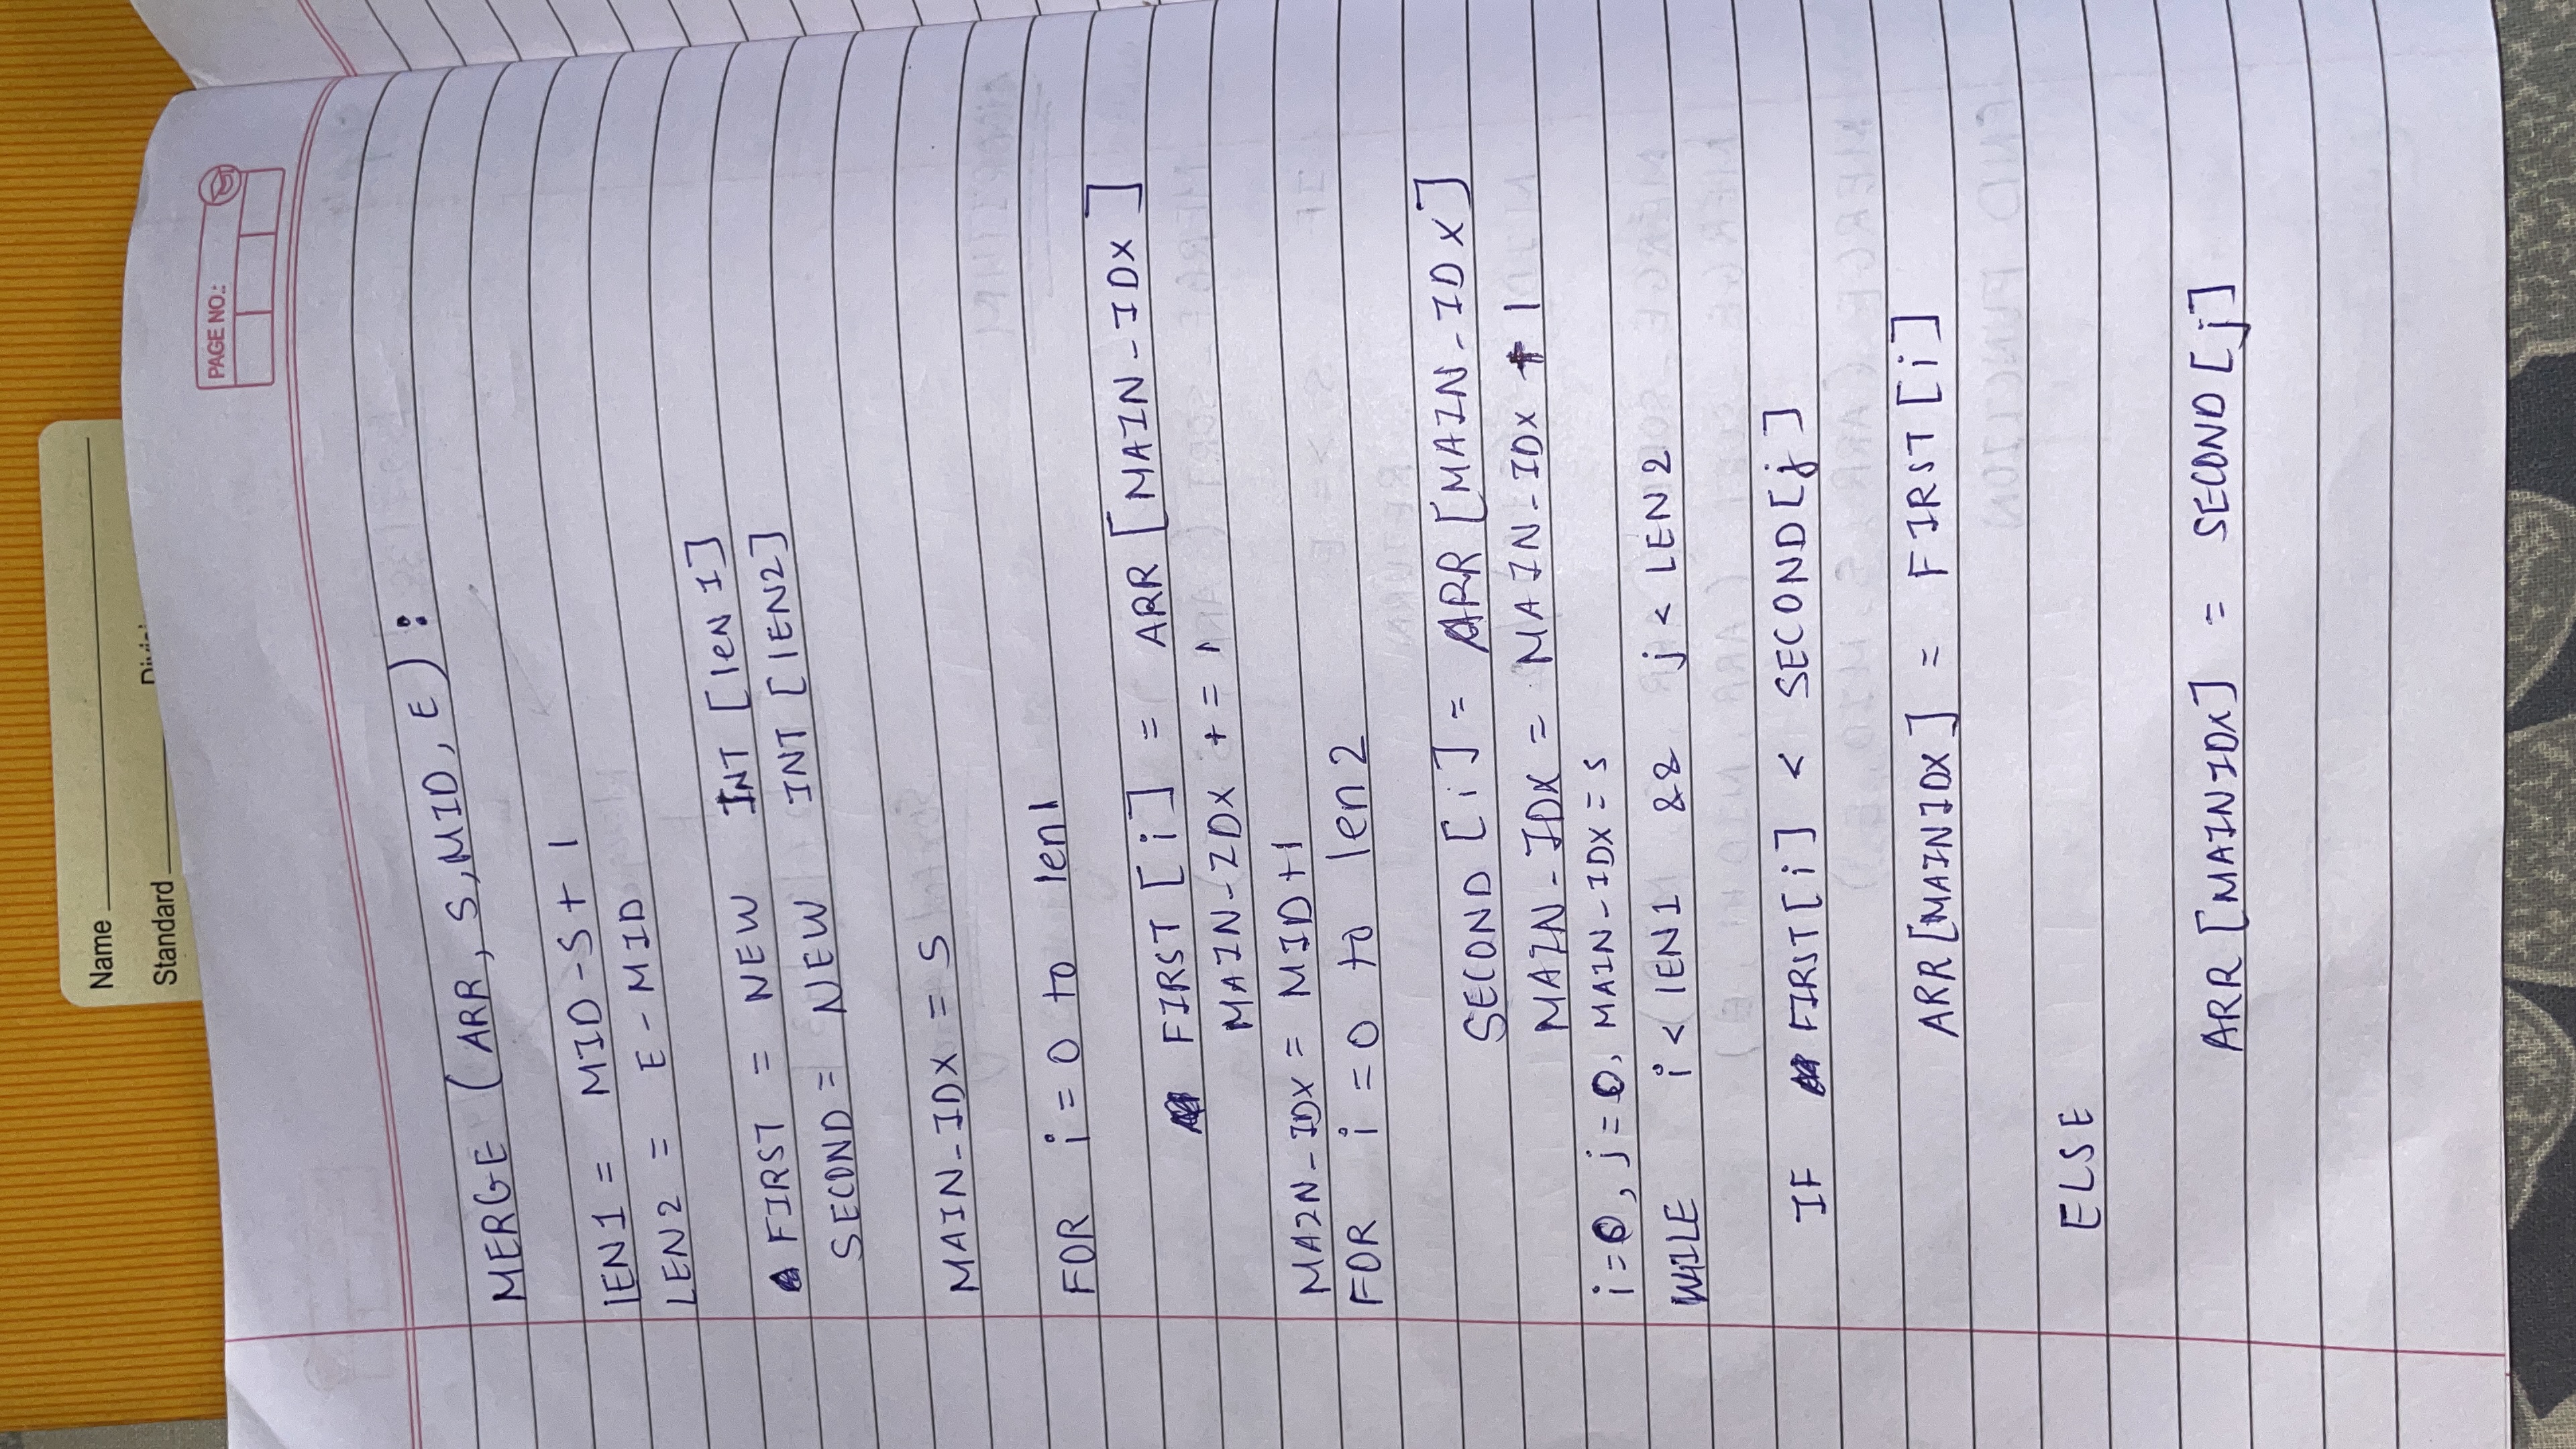 Name
Standard
PAGE NO.:
MERGE (ARR, S, MID, E) :
LEN1 = MID - S + 1
LEN2 = E - MID
FIRST = NEW INT [leN 1]
SECOND = NEW INT [lEN2]
MAIN_IDX = S
FOR i = 0 to len1
FIRST [i] = ARR [MAIN_IDX]
MAIN_IDX += 1
MAIN_IDX = MID+1
FOR i = 0 to len2
SECOND [i] = ARR [MAIN_IDX]
MAIN_IDX = MAIN_IDX + 1
i=0, j=0, MAIN_IDX = s
WILE i < lEN1 && j < LEN2
IF FIRST[i] < SECOND[j]
ARR [MAINIDX] = FIRST [i]
ELSE
ARR [MAINIDX] = SECOND [j]